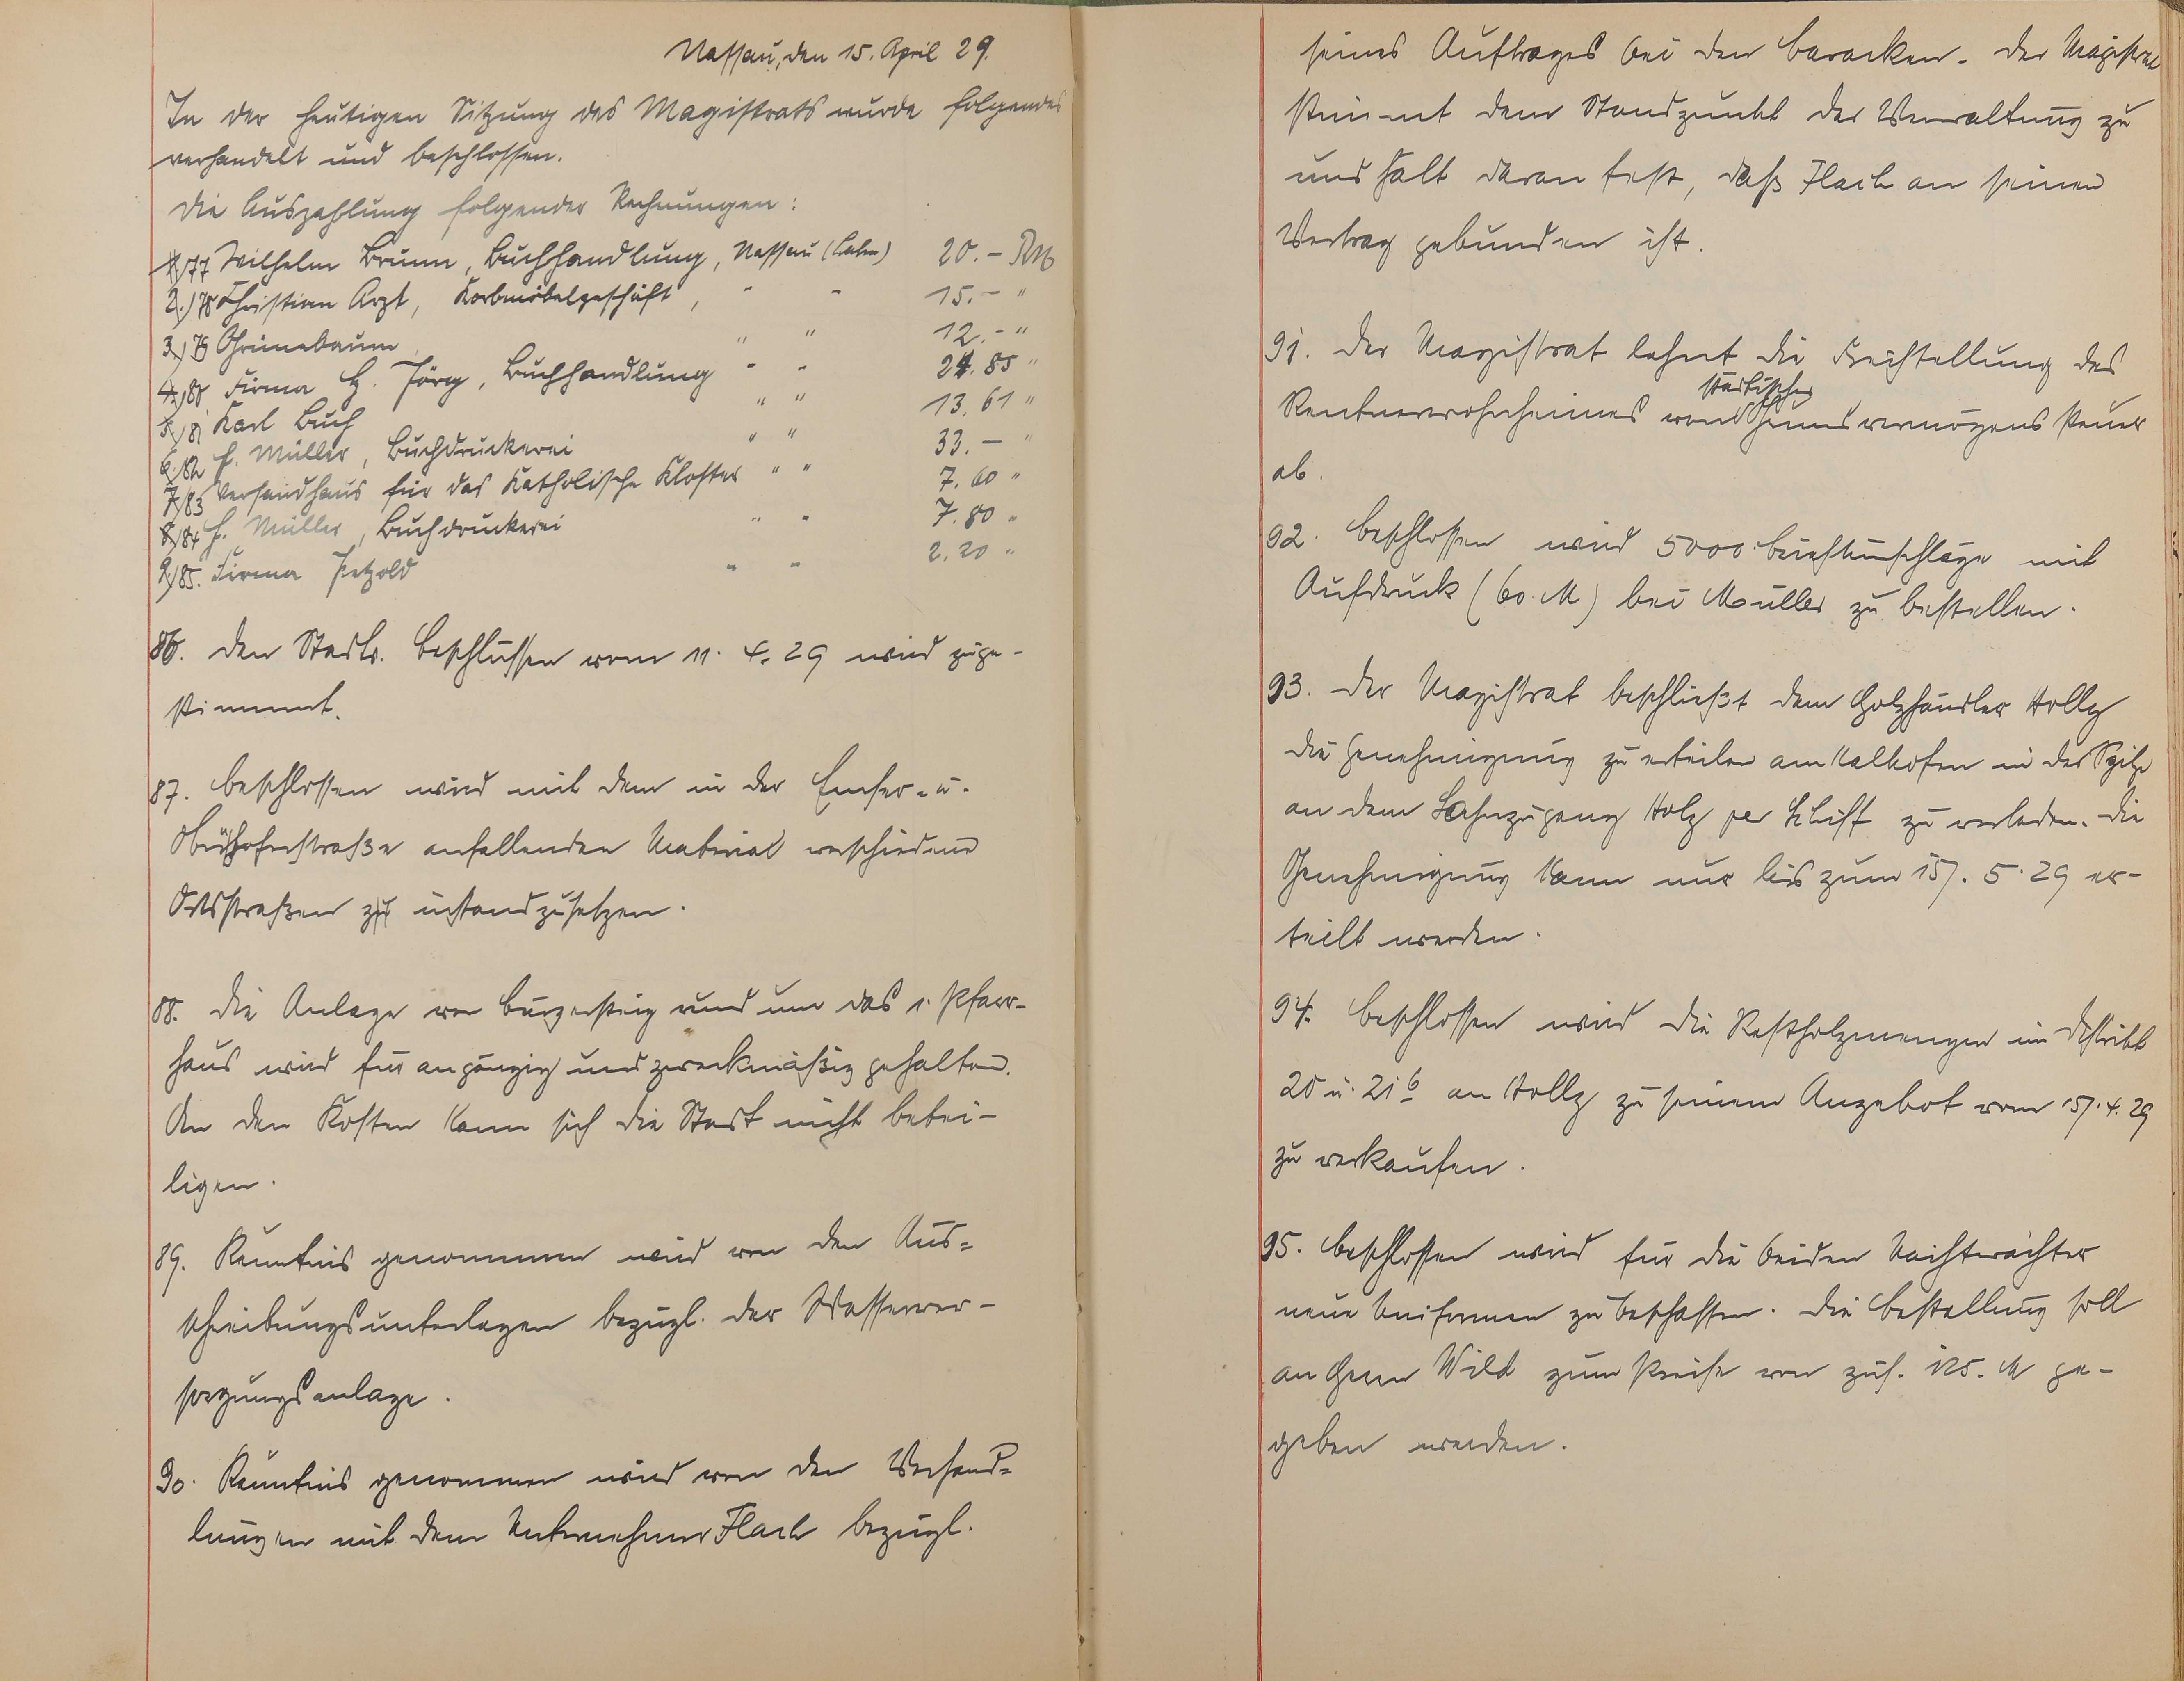 Nassau, den 15. April 29.
In der heutigen Sitzung des Magistrats wurde folgendes
verhandelt und beschlossen.
Die Auszahlung folgender Rechnungen:
1.) 77 Wilhelm Brunn, Buchhandlung, Nassau (Lahn) 20.- RM
2.) 78 Christian Arzt, Korbmöbelgeschäft, " " 15.- "
3.) 79 Grünebaum " " 12.- "
4.) 80 Firma H. Jörg, Buchhandlung " " 24.85 "
5.) 81 Karl Buch " " 13.61 "
6.) 82 H. Müller, Buchdruckerei " " 33.- "
7.) 83 Versandhaus für das Katholische Kloster " " 7.60 "
8.) 84 H. Müller, Buchdruckerei " " 7.80 "
9.) 85. Firma Petzold " " 2.20 "
86. Den Stadtv. Beschlüssen vom 11. 4. 29 wird zuge-
stimmt.
87. Beschlossen wird mit dem in der Emser- u.
Obernhoferstraße anfallenden Material verschiedene
Ortsstraßen zu instandzusetzen.
88. Die Anlage von Bürgersteig rund um das 1. Pfarr-
haus wird für angängig und zweckmäßig gehalten.
An den Kosten kann sich die Stadt nicht betei-
ligen.
89. Kenntnis genommen wird von den Aus-
schreibungsunterlagen bezügl. der Wasserver-
sorgungsanlage.
90. Kenntnis genommen wird von den Verhand-
lungen mit dem Unternehmer Flach bezügl.
seines Auftrages bei den Baracken. Der Magistrat
stimmt dem Standpunkt der Verwaltung zu
und hält daran fest, daß Flach an seinen
Vertrag gebunden ist.
91. Der Magistrat lehnt die Freistellung des
städtischer
Rentnerwohnheimes von Grundvermögens steuer
ab.
92. Beschlossen wird 5000 Briefumschläge mit
Aufdruck (60. M) bei Müller zu bestellen.
93. Der Magistrat beschließt dem Holzhändler Holly
die Genehmigung zu erteilen am Kalkofen in der Spitze
an dem Lahnzugang Holz per Schiff zu verladen. Die
Genehmigung kann nur bis zum 15. 5. 29 er-
teilt werden.
94. Beschlossen wird die Restholzmengen im Distrikt
20 u. 21 b an Holly zu seinem Angebot vom 15. 4. 29
zu verkaufen.
95. Beschlossen wird für die beiden Nachtwächter
neue Uniformen zu beschaffen. Die Bestellung soll
an Herrn Wild zum Preise von zus. 125. M ge-
geben werden.